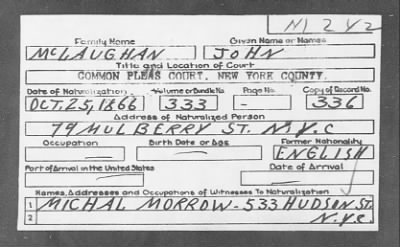 M 2 4 2
Family Name Given Name or Names
McLAUGHAN JOHN
Title and Location of Court
COMMON PLEAS COURT, NEW YORK COUNTY.
Date of Naturalization Volume or Bundle No. Page No. Copy of Record No.
OCT. 25, 1866 333 - 336
Address of Naturalized Person
79 MULBERRY ST. N.Y.C
Occupation Birth Date or Age Former Nationality
— — ENGLISH
Port of Arrival in the United States Date of Arrival
— —
Names, Addresses and Occupations of Witnesses To Naturalization
1 MICHAL MORROW - 533 HUDSON ST.
2 N.Y.C.